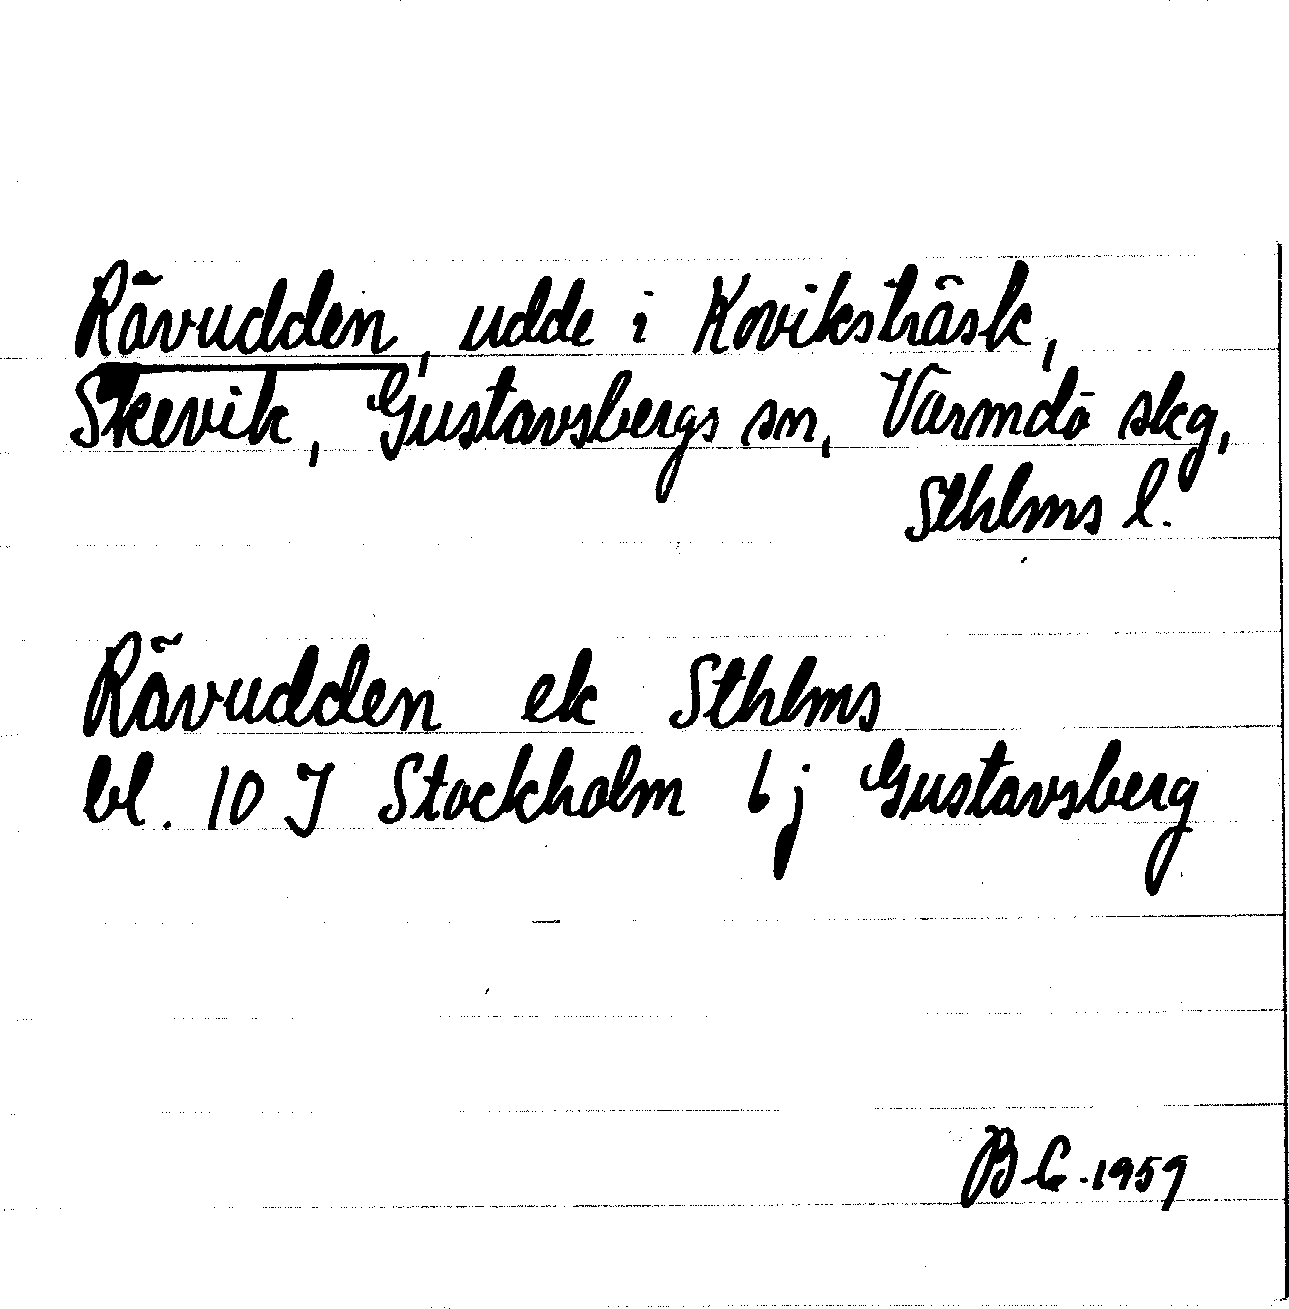 Rävudden, udde i Koviksträsk,
Skevik, Gustavsbergs sn, Värmdö skg,
Sthlms l.
Rävudden ek Sthlms
bl. 10 J Stockholm 6 j Gustavsberg
B.C. 1959